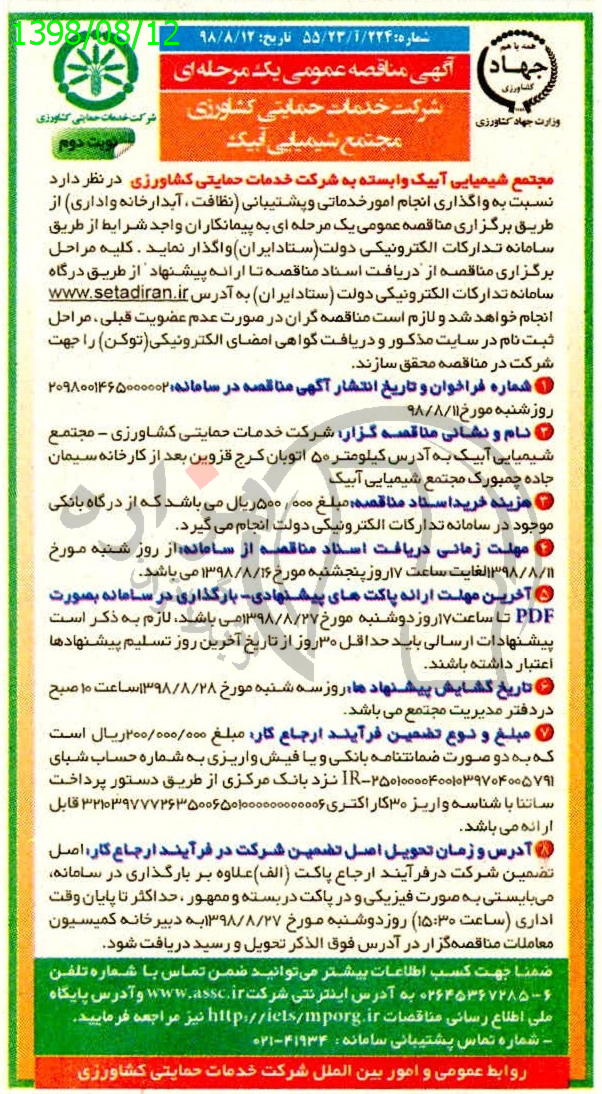 1398/08/12
شماره: ۵۵/۲۳/آ/۲۲۴ تاریخ: ۹۸/۸/۱۲
همه با هم
جهاد
کشاورزی
وزارت جهاد کشاورزی
آگهی مناقصه عمومی یک مرحله ای
شرکت خدمات حمایتی کشاورزی
مجتمع شیمیایی آبیک
شرکت خدمات حمایتی کشاورزی
نوبت دوم
مجتمع شیمیایی آبیک وابسته به شرکت خدمات حمایتی کشاورزی در نظر دارد
نسبت به واگذاری انجام امور خدماتی و پشتیبانی (نظافت ، آبدارخانه و اداری) از
طریق برگزاری مناقصه عمومی یک مرحله ای به پیمانکاران واجد شرایط از طریق
سامانه تدارکات الکترونیکی دولت(ستاد ایران)واگذار نماید . کلیه مراحل
برگزاری مناقصه از "دریافت اسناد مناقصه تا ارائه پیشنهاد" از طریق درگاه
سامانه تدارکات الکترونیکی دولت (ستاد ایران) به آدرس www.setadiran.ir
انجام خواهد شد و لازم است مناقصه گران در صورت عدم عضویت قبلی ، مراحل
ثبت نام در سایت مذکور و دریافت گواهی امضای الکترونیکی(توکن) را جهت
شرکت در مناقصه محقق سازند.
۱ شماره فراخوان و تاریخ انتشار آگهی مناقصه در سامانه: ۲۰۹۸۰۰۱۴۶۵۰۰۰۰۰۲
روز شنبه مورخ ۹۸/۸/۱۱
۲ نام و نشانی مناقصه گزار: شرکت خدمات حمایتی کشاورزی - مجتمع
شیمیایی آبیک به آدرس کیلومتر ۵۰ اتوبان کرج قزوین بعد از کارخانه سیمان
جاده چمبورک مجتمع شیمیایی آبیک
۳ هزینه خرید اسناد مناقصه: مبلغ ۵۰۰/۰۰۰ ریال می باشد که از درگاه بانکی
موجود در سامانه تدارکات الکترونیکی دولت انجام می گیرد.
۴ مهلت زمانی دریافت اسناد مناقصه از سامانه: از روز شنبه مورخ
۱۳۹۸/۸/۱۱ لغایت ساعت ۱۷ روز پنجشنبه مورخ ۱۳۹۸/۸/۱۶ می باشد.
۵ آخرین مهلت ارائه پاکت های پیشنهادی- بارگذاری در سامانه بصورت
PDF تا ساعت ۱۷ روز دوشنبه مورخ ۱۳۹۸/۸/۲۷ می باشد، لازم به ذکر است
پیشنهادات ارسالی باید حداقل ۳۰ روز از تاریخ آخرین روز تسلیم پیشنهادها
اعتبار داشته باشند.
۶ تاریخ گشایش پیشنهاد ها: روز سه شنبه مورخ ۱۳۹۸/۸/۲۸ ساعت ۱۰ صبح
در دفتر مدیریت مجتمع می باشد.
۷ مبلغ و نوع تضمین فرآیند ارجاع کار: مبلغ ۲۰۰/۰۰۰/۰۰۰ ریال است
که به دو صورت ضمانتنامه بانکی و یا فیش واریزی به شماره حساب شبای
IR-۲۵۰۱۰۰۰۰۴۰۰۱۰۳۹۷۰۴۰۰۵۷۹۱ نزد بانک مرکزی از طریق دستور پرداخت
ساتنا با شناسه واریز ۳۰ کاراکتری ۳۲۱۰۳۹۷۷۷۲۶۳۵۰۰۶۵۰۱۰۰۰۰۰۰۰۰۰۰۰۶ قابل
ارائه می باشد.
۸ آدرس و زمان تحویل اصل تضمین شرکت در فرآیند ارجاع کار: اصل
تضمین شرکت در فرآیند ارجاع پاکت (الف) علاوه بر بارگذاری در سامانه،
می‌بایستی به صورت فیزیکی و در پاکت در بسته و ممهور ، حداکثر تا پایان وقت
اداری (ساعت ۱۵:۳۰) روز دوشنبه مورخ ۱۳۹۸/۸/۲۷ به دبیرخانه کمیسیون
معاملات مناقصه‌گزار در آدرس فوق الذکر تحویل و رسید دریافت شود.
ضمنا جهت کسب اطلاعات بیشتر می‌توانید ضمن تماس با شماره تلفن
۶-۰۲۶۴۵۳۶۷۲۸۵ به آدرس اینترنتی شرکت www.assc.ir و آدرس پایگاه
ملی اطلاع رسانی مناقصات http://iets/mporg.ir نیز مراجعه فرمایید.
- شماره تماس پشتیبانی سامانه : ۴۱۹۳۴-۰۲۱
روابط عمومی و امور بین الملل شرکت خدمات حمایتی کشاورزی